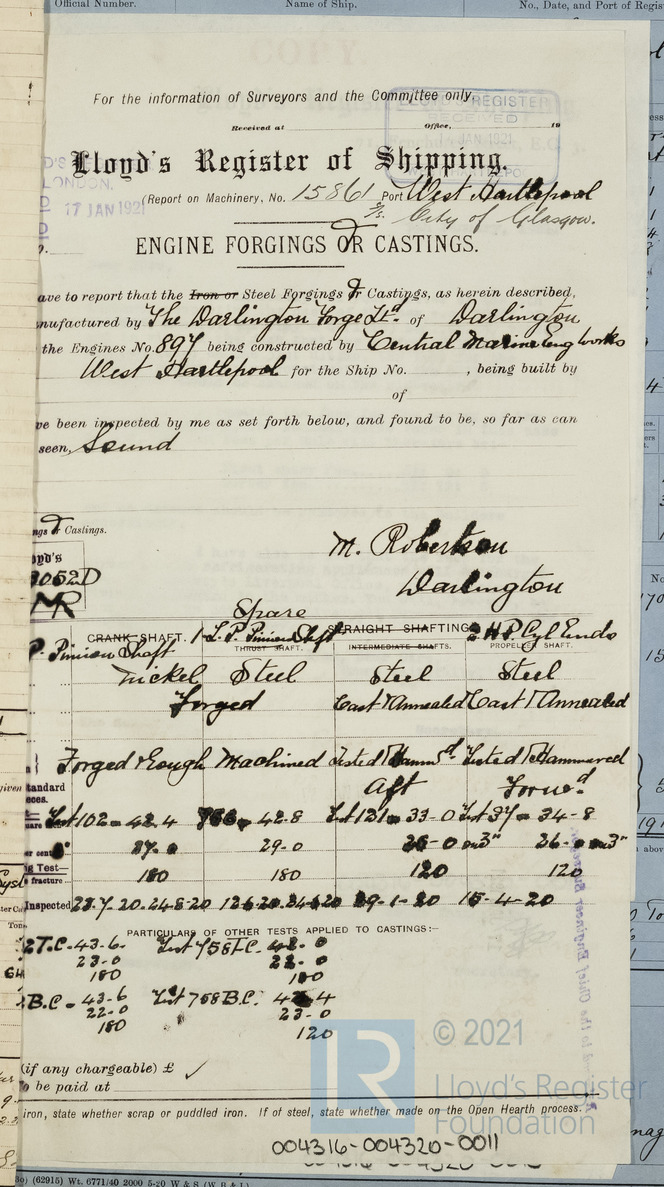 Official Number.
Name of Ship.
No., Date, and Port of Regis
For the information of Surveyors and the Committee only.
LLOYD'S REGISTER
RECEIVED
JAN 1921
Received at
Office,
19
Lloyd's Register of Shipping.
LONDON.
17 JAN 1921
(Report on Machinery, No. 15861 Port West Hartlepool
S/s. City of Glasgow.
ENGINE FORGINGS OR CASTINGS.
ave to report that the Iron or Steel Forgings & Castings, as herein described,
nufactured by The Darlington Forge Ltd. of Darlington
the Engines No. 897 being constructed by Central Marine Eng Works
West Hartlepool for the Ship No. , being built by
of
ve been inspected by me as set forth below, and found to be, so far as can
seen, Sound
ngs & Castings.
oyd's
3052D
MR
M. Robertson
Darlington
Spare
CRANK SHAFT. 1 L.P. Pinion Shaft STRAIGHT SHAFTING 2 H.P. Cyl Ends
P. Pinion Shaft THRUST SHAFT. INTERMEDIATE SHAFTS. PROPELLER SHAFT.
Nickel Steel Steel Steel
Forged Cast & Annealed Cast & Annealed
Forged & Rough Machined Tested & Hamm'd. Tested & Hammered
Aft Forwd
tandard
eces.
Test 102 = 42.4 758 = 42.8 Test 121 = 33-0 Test 37 = 34-8
27-0 29-0 26-0 on 3" 26-0 on 3"
180 180 120 120
fracture
Inspected 15-4-20
PARTICULARS OF OTHER TESTS APPLIED TO CASTINGS:—
2T.C. - 43-6. Test 758 T.C. 42-0
23-0 22-0
180 180
B.C. - 43-6 Test 758 B.C.
22-0 23-0
180 120
(if any chargeable) £ ✓
o be paid at
iron, state whether scrap or puddled iron. If of steel, state whether made on the Open Hearth process.
© 2021
LR
Lloyd's Register
Foundation
004316-004320-0011
(62915) Wt. 6771/40 2000 5-20 W & S